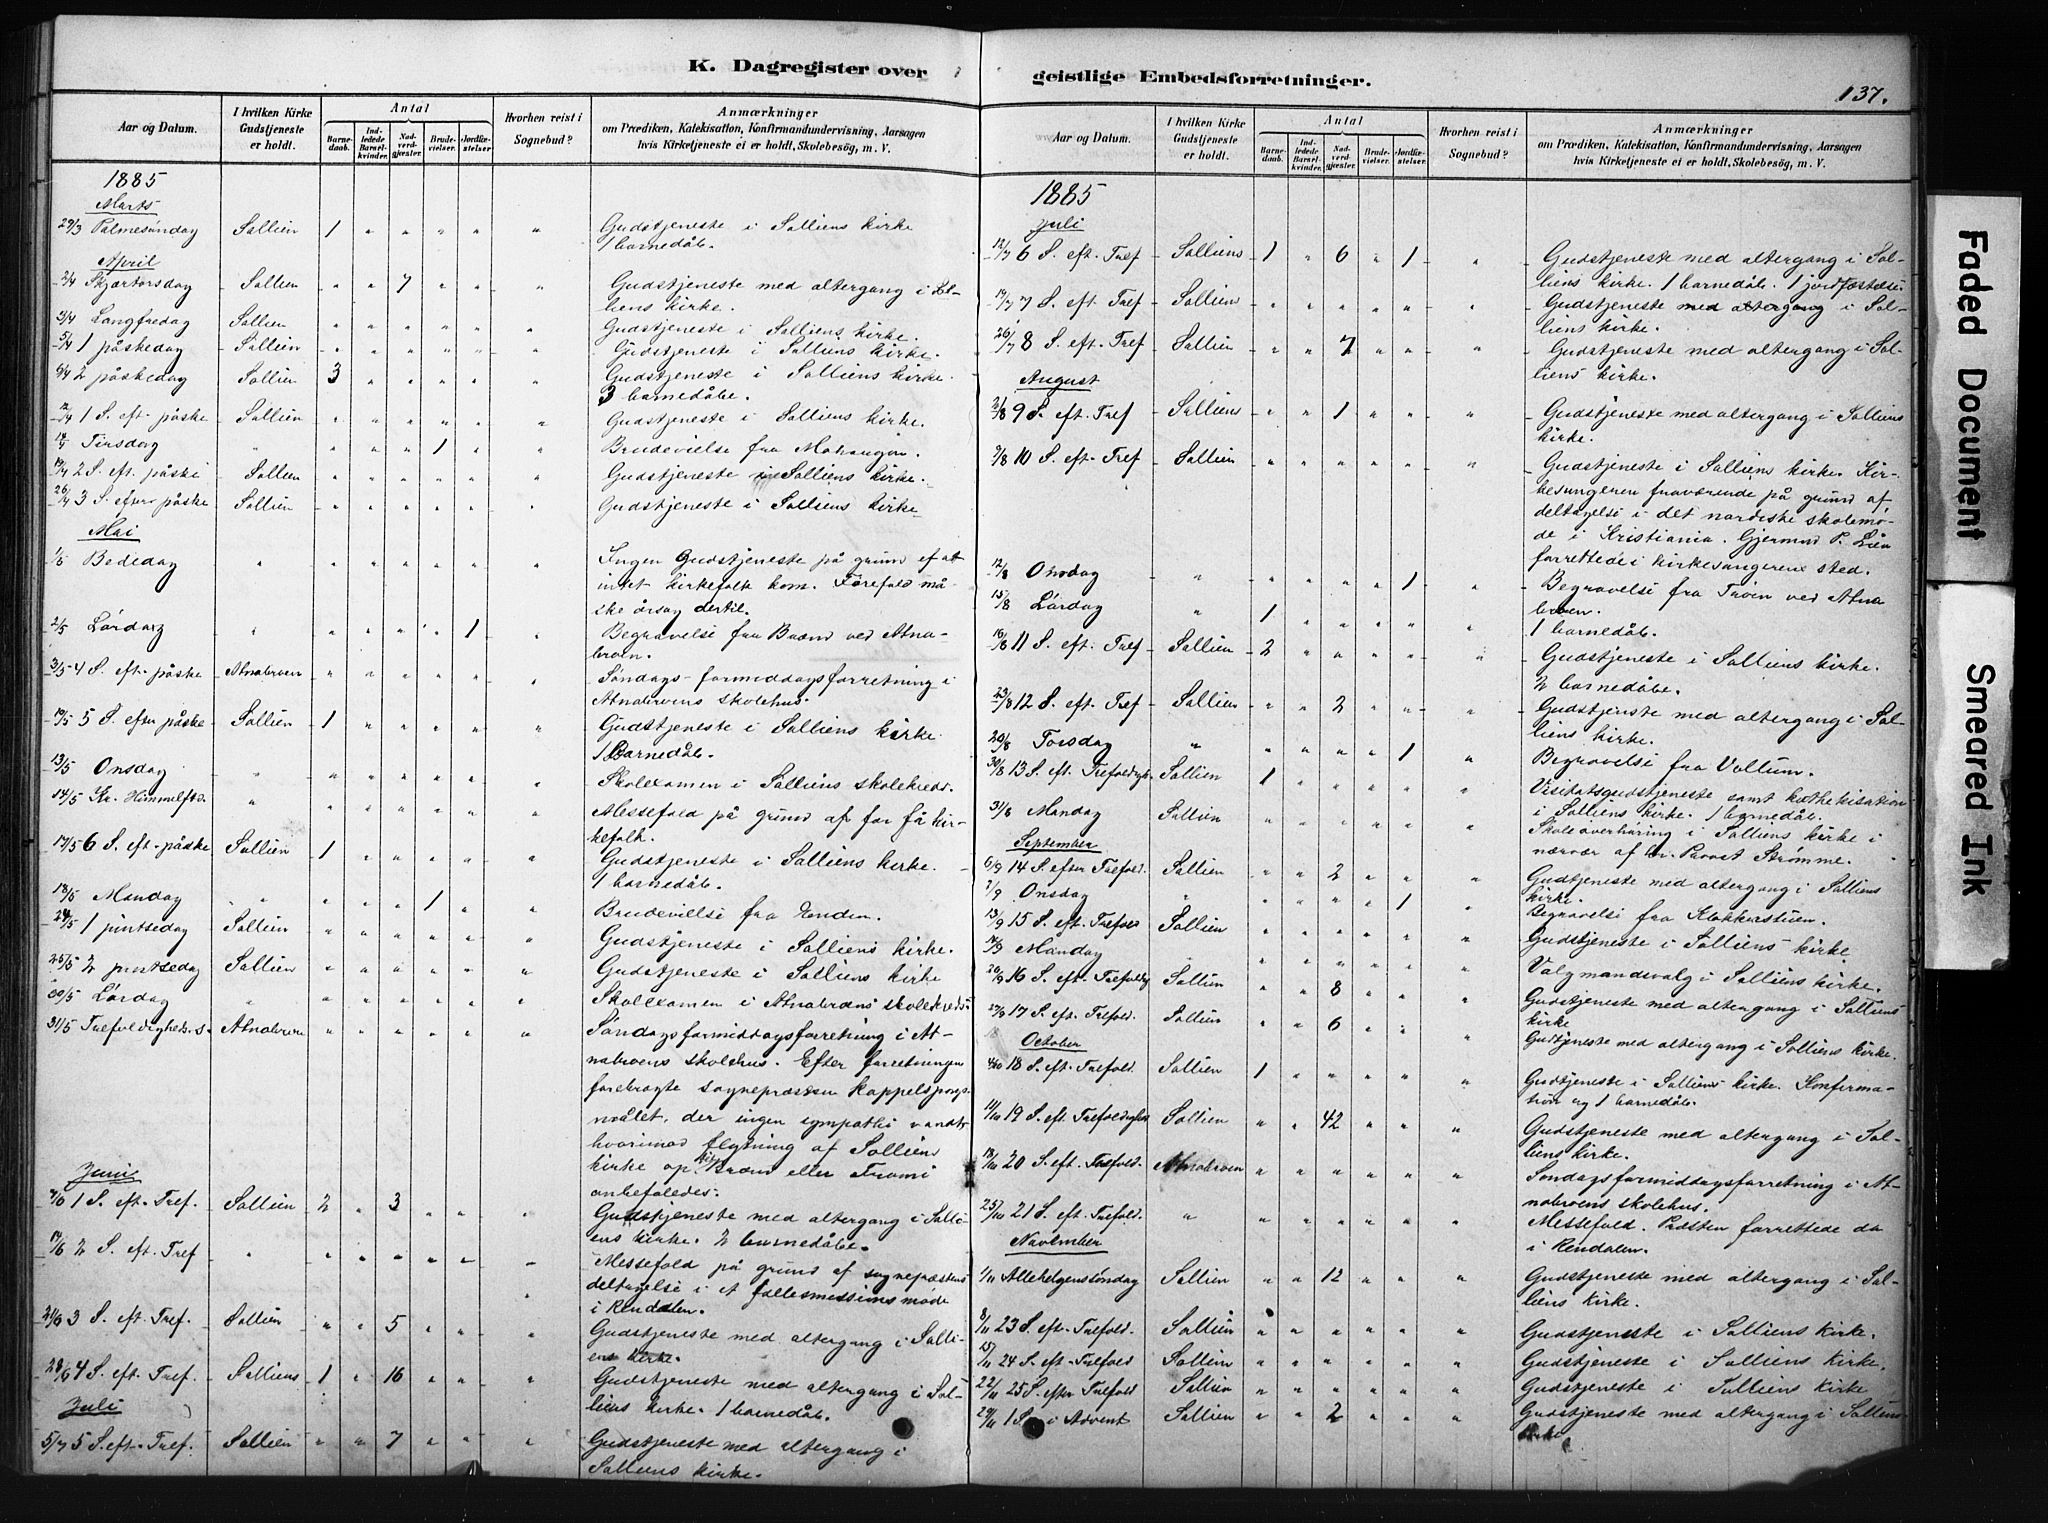 K. Dagregister over
Aar og Datum.
I hvilken Kirke Gudstjeneste er holdt.
Antal
Barnedaab.
Indledede Barselkvinder.
Nadverdgjester.
Brudevielser.
Jordfæstelser.
Hvorhen reist i Sognebud?
Anmærkninger
om Prædiken, Katekisation, Konfirmandundervisning, Aarsagen
hvis Kirketjeneste ei er holdt, Skolebesög, m. V.
1885
Marts
29/3 Palmesøndag Sollien 1 " " " " " Gudstjeneste i Solliens kirke
1 barnedåb.
April
2/4 Skjærtorsdag Sollien " " 7 " " " Gudstjeneste med altergang i Sol-
liens kirke.
3/4 Langfredag Sollien " " " " " " Gudstjeneste i Solliens kirke.
5/4 1 påskedag Sollien " " " " " " Gudstjeneste i Solliens kirke.
6/4 2 påskedag Sollien 3 " " " " " Gudstjeneste i Solliens kirke.
3 barnedåbe.
12/4 1 S. eft. påske Sollien " " " " " " Gudstjeneste i Solliens kirke.
14/4 Tirsdag " " " " 1 " " Brudevielse fra
19/4 2 S. eft. påske Sollien " " " " " " Gudstjeneste i Solliens kirke.
26/4 3 S. efter påske Sollien " " " " " " Gudstjeneste i Solliens kirke.
Mai
1/5 Bededag " " " " " " " Ingen Gudstjeneste på grund af at
intet kirkefolk kom. Førefald må-
ske årsag dertil.
2/5 Lørdag " " " " " 1 " Begravelse fra Brænd ved Atna-
broen.
3/5 4 S. eft. påske Atnabroen " " " " " " Søndags-formiddagsforretning i
Atnabroens skolehus.
10/5 5 S. efter påske Sollien 1 " " " " " Gudstjeneste i Solliens kirke.
1 Barnedåb.
13/5 Onsdag " " " " " " " Skolexamen i Solliens skolekreds.
14/5 Kr. Himmelftd. " " " " " " " Messefald på grund af for få kir-
kefolk.
17/5 6 S. eft. påske Sollien 1 " " " " " Gudstjeneste i Solliens kirke.
1 barnedåb.
18/5 Mandag " " " " 1 " " Brudevielse fra Enden.
24/5 1 pintsedag Sollien " " " " " " Gudstjeneste i Solliens kirke.
25/5 2 pintsedag Sollien " " " " " " Gudstjeneste i Solliens kirke
30/5 Lørdag " " " " " " " Skolexamen i Atnabroens skolekreds.
31/5 Trefoldigheds.s. Atnabroen " " " " " " Søndagsformiddagsforretning i At-
nabroens skolehus. Efter forretningen
forebragte sognepræsten kappelspørgs-
målet, der ingen sympathi vandt,
hvorimod flytning af Sollien
kirke op til Brænd eller Tromi
anbefaledes.
Juni
7/6 1 S. eft. Tref. Sollien 2 " 3 " " " Gudstjeneste med altergang i Solli-
ens kirke. 2 barnedåbe.
14/6 2 S. eft. Tref " " " " " " " Messefald på grund af sognepræstens
deltagelse i et fællesmissionsmøde
i Rendalen.
21/6 3 S. eft. Tref. Sollien " " 5 " " " Gudstjeneste med altergang i Solli-
ens kirke.
28/6 4 S. eft. Tref. Solliens 1 " 16 " " " Gudstjeneste med altergang i Sol-
liens kirke. 1 barnedåb.
Juli
5/7 5 S. eft. Tref. Sollien " " 7 " " " Gudstjeneste med altergang i
Solliens kirke.
geistlige Embedsforretninger.
137.
Aar og Datum.
I hvilken Kirke Gudstjeneste er holdt.
Antal
Barnedaab.
Indledede Barselkvinder.
Nadverdgjester.
Brudevielser.
Jordfæstelser.
Hvorhen reist i Sognebud?
Anmærkninger
om Prædiken, Katekisation, Konfirmandundervisning, Aarsagen
hvis Kirketjeneste ei er holdt, Skolebesög, m. V.
1885
Juli
12/7 6 S. eft. Tref Solliens 1 " 6 " 1 " Gudstjeneste med altergang i Sol-
liens kirke. 1 barnedåb. 1 jordfæstelse
19/7 7 S. eft. Tref Sollien " " " " " " Gudstjeneste med altergang i Sol-
liens kirke.
26/7 8 S. eft. Tref Sollien " " 7 " " " Gudstjeneste med altergang i Sol-
liens kirke.
August
2/8 9 S. eft. Tref Solliens " " 1 " " " Gudstjeneste med altergang i Solliens
kirke.
9/8 10 S. eft. Tref Sollien " " " " " " Gudstjeneste i Solliens kirke. Kir-
kesangeren fraværende på grund af
deltagelse i det nordiske skolemø-
de i Kristiania. Gjermund P. Lien
forrettede i kirkesangerens sted.
12/8 Onsdag " " " " " 1 " Begravelse fra Trøen ved Atna
broen.
15/8 Lørdag " 1 " " " " " 1 barnedåb.
16/8 11 S. eft. Tref Sollien 2 " " " " " Gudstjeneste i Solliens kirke.
2 barnedåbe.
23/8 12 S. eft. Tref Sollien " " 2 " " " Gudstjenste med altergang i Sol-
liens kirke.
20/8 Torsdag " " " " " 1 " Begravelse fra Vollum.
30/8 13 S. eft. Trefoldigh. Sollien 1 " " " " " Visitatsgudstjeneste samt kathekisation
i Solliens kirke. 1 barnedåb.
31/8 Mandag Sollien " " " " " " Skoleoverhøring i Solliens kirke i
nærvær af hr. Provst Strømme.
September
6/9 14 S. efter Trefold. Sollien " " 2 " " " Gudtjeneste med altergang i Solliens
kirke.
Onsdag " " " " " 1 " Begravelse fra Klokkerstuen.
13/9 15 S. eft. Trefold Sollien " " " " " " Gudstjeneste i Solliens kirke
Mandag " " " " " " " Valgmandsvalg i Solliens kirke.
20/9 16 S. eft. Trefoldigh Sollien " " 8 " " " Gudstjeneste med altergang i Solliens
kirke
27/9 17 S. eft. Trefold. Sollien " " 6 " " " Gudtjeneste med altergang i Solliens kirke.
October
4/10 18 S. eft. Trefold. Sollien 1 " " " " " Gudstjeneste i Solliens kirke. Konfirma-
tion og 1 barnedåb.
11/10 19 S. eft. Trefoldighed Sollien " " 42 " " " Gudstjeneste med altergang i Sol-
liens kirke.
18/10 20 S. eft. Trefold. Atnabroen " " " " " " Søndagsformiddagsforretning i At-
nabroens skolehus.
25/10 21 S. eft. Trefold. " " " " " " " Messefald. Præsten forrettede da
i Rendalen.
November
1/11 Allehelgensøndag Sollien " " 12 " " " Gudstjeneste med altergang i Sol-
liens kirke.
8/11 23 S. eft. Trefold. Sollien " " " " " " Gudstjeneste i Solliens kirke.
15/11 24 S. eft. Trefold Sollien " " " " " " Gudstjeneste i Solliens kirke.
22/11 25 S. efter Trefold Sollien " " " " " " Gudstjeneste i Solliens kirke
29/11 1 S. i Advent Sollien " " 2 " " " Gudstjeneste med altergang i Solliens
kirke
Faded Document
Smeared Ink